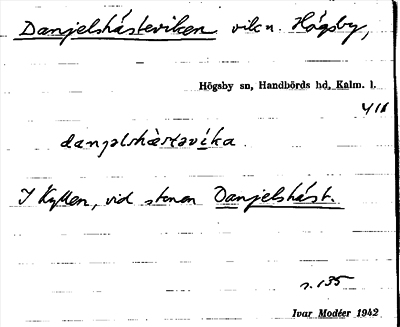 Danjelshästeviken vik n. Högsby,
Högsby sn, Handbörds hd, Kalm. l.
4118
danjəlshàstəvíka.
I Kyllen, vid stenen Danjelshäst.
s. 135
Ivar Modéer 1942